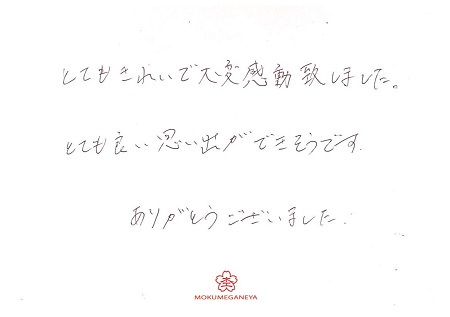 とてもきれいで大変感動致しました。
とても良い思い出ができそうです.
ありがとうございました.
MOKUMEGANEYA